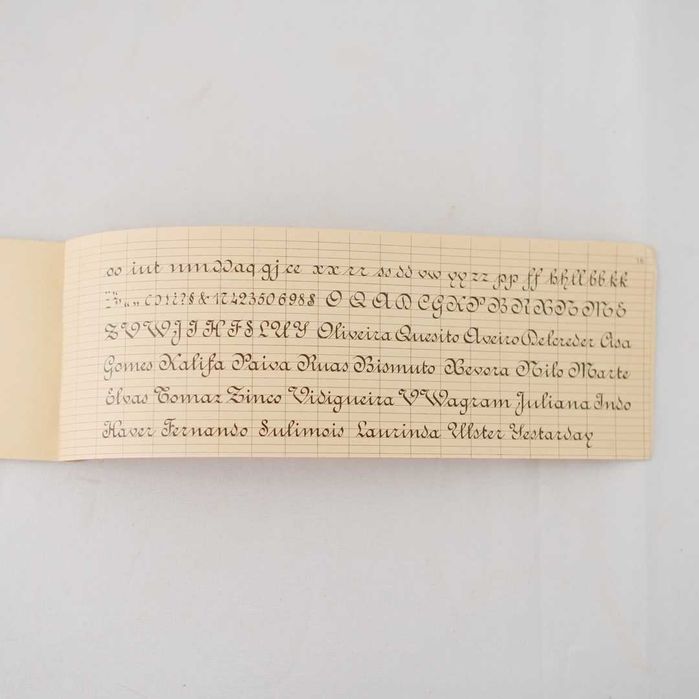 oo iut nmDdaq gjce xx rr ss dd vw yy zz pp ff bhll bb kk
( ) 1 ! ? § & 17 42350 698 $ O Q A D C G X P B R B N M E
Z V W J I H F S L U Y Oliveira Quesito Aveiro Delcreder Asa
Gomes Kalifa Paiva Ruas Bismuto Nilo Marte
Elvas Tomaz Zinco Vidigueira V Wagram Juliana Indo
Haver Fernando Sulimois Laurinda Ulster Yestarday